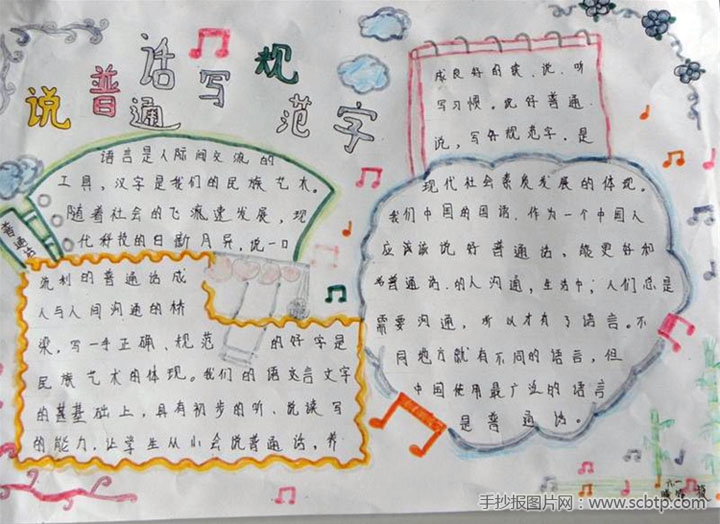 说普通话写规范字
普通话
语言是人际间交流的
工具，汉字是我们的民族艺术。
随着社会的飞流速发展，现
代科技的日新月异，说一口
流利的普通话成
人与人间沟通的桥
梁，写一手正确、规范的好字是
民族艺术的体现。我们的语文言文字
的基基础上，具有初步的听、说读写
的能力，让学生从小会说普通话，养
成良好的读、说、听
写习惯。说好普通
说，写好规范字，是
现代社会素质发展的体现。
我们中国的国语，作为一个中国人
应该该说好普通话，能更好和
书普通话的人沟通，生活中，人们总是
需要沟通，所以才有了语言。不
同地方就有不同的语言，但
中国使用最广泛的语言
是普通话。
手抄报图片网：www.scbtp.com